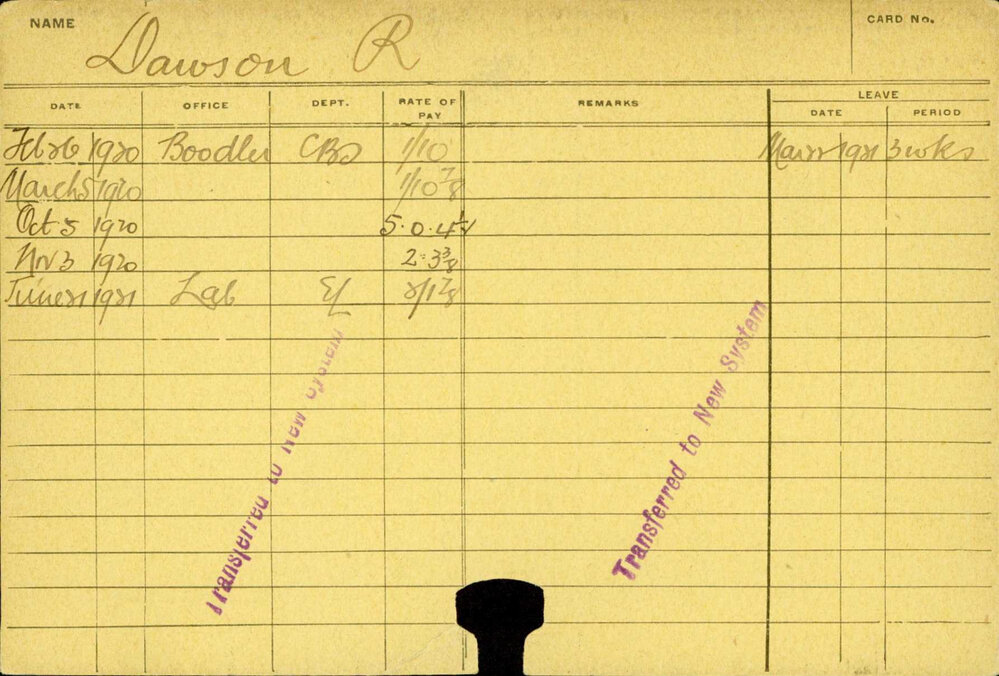 NAME Dawson R CARD No.
DATE OFFICE DEPT. RATE OF PAY REMARKS LEAVE DATE PERIOD
Feb 26 1920 Boodler 1/10 1921 3 wks
March 5 1920 1/10 7/8
Oct 5 1920 5.0.4 1/4
Nov 3 1920 2=3 3/8
June 21 1921 Lab 2/1 7/8
Transferred to New System
Transferred to New System